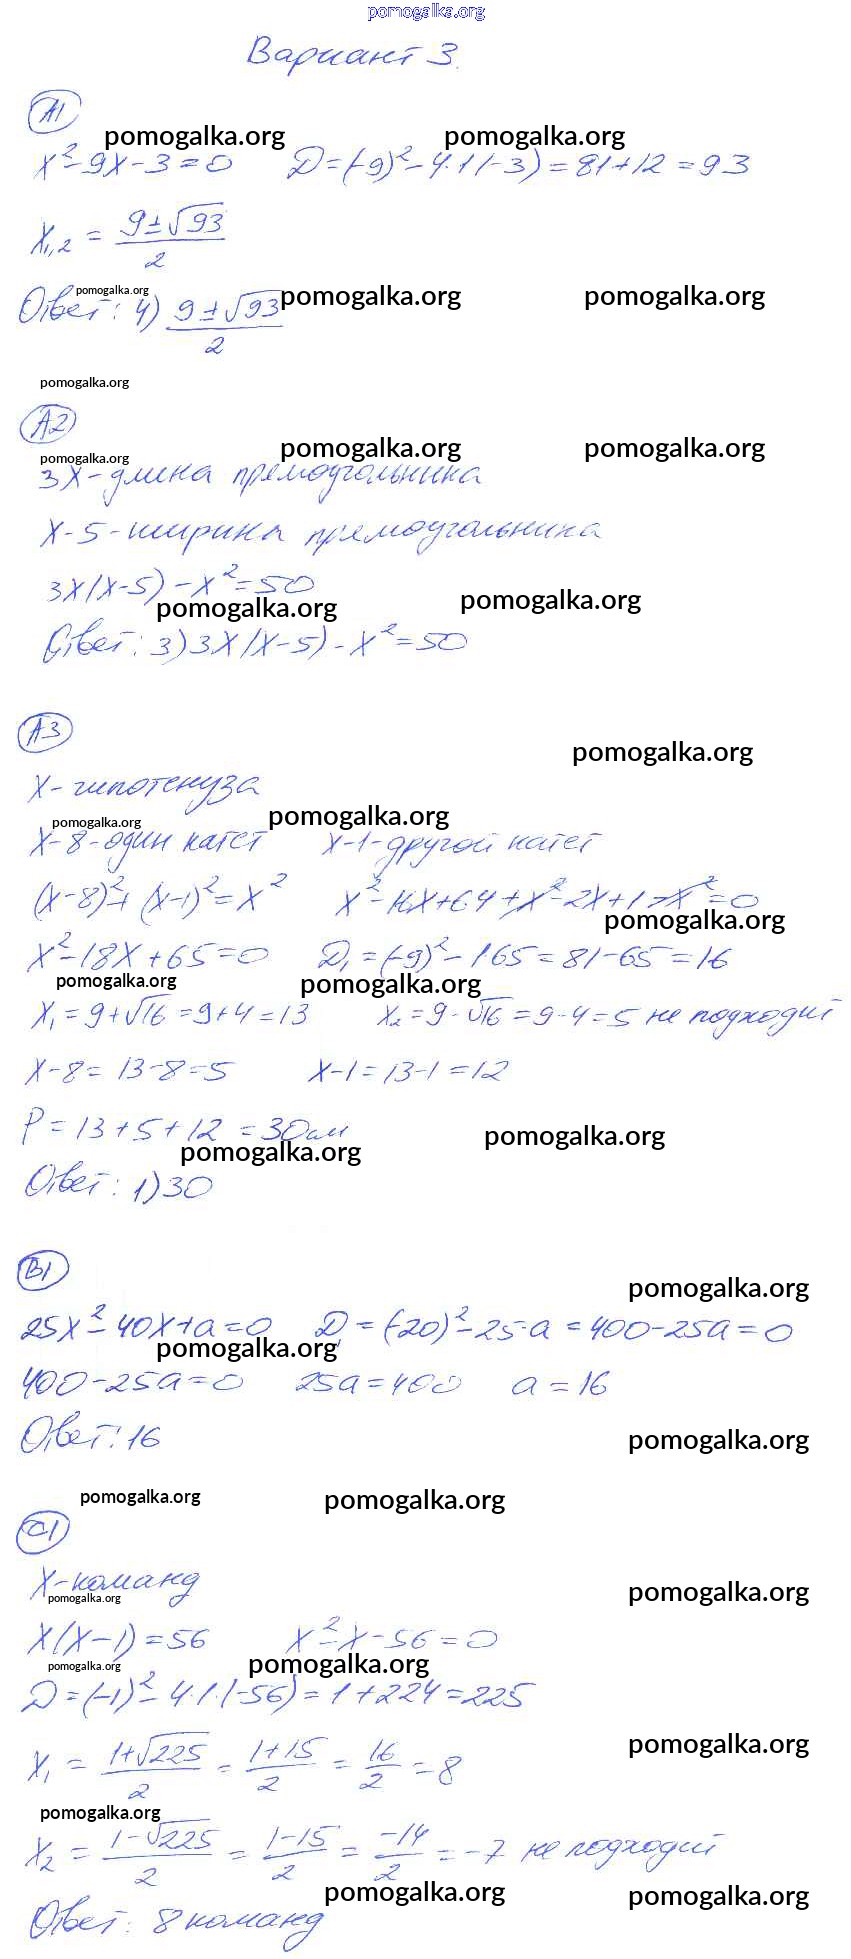 pomogalka.org
Вариант 3.
A1
pomogalka.org pomogalka.org
x² - 9x - 3 = 0 D = (-9)² - 4·1(-3) = 81 + 12 = 93
x₁,₂ = (9 ± √93)/2
pomogalka.org pomogalka.org pomogalka.org
Ответ: 4) (9 ± √93)/2
pomogalka.org
A2
pomogalka.org pomogalka.org pomogalka.org
3x - длина прямоугольника
x - 5 - ширина прямоугольника
3x(x-5) - x² = 50
pomogalka.org pomogalka.org
Ответ: 3) 3x(x-5) - x² = 50
A3
pomogalka.org
x - гипотенуза
pomogalka.org pomogalka.org
x - 8 - один катет x - 1 - другой катет
(x-8)² + (x-1)² = x² x² - 16x + 64 + x² - 2x + 1 - x² = 0
pomogalka.org
x² - 18x + 65 = 0 D₁ = (-9)² - 1·65 = 81 - 65 = 16
pomogalka.org pomogalka.org
x₁ = 9 + √16 = 9 + 4 = 13 x₂ = 9 - √16 = 9 - 4 = 5 не подходит
x - 8 = 13 - 8 = 5 x - 1 = 13 - 1 = 12
P = 13 + 5 + 12 = 30 см
pomogalka.org pomogalka.org
Ответ: 1) 30
B1
pomogalka.org
25x² - 40x + a = 0 D₁ = (-20)² - 25·a = 400 - 25a = 0
pomogalka.org
400 - 25a = 0 25a = 400 a = 16
Ответ: 16
pomogalka.org
pomogalka.org pomogalka.org
C1
x - команд
pomogalka.org pomogalka.org
x(x-1) = 56 x² - x - 56 = 0
pomogalka.org pomogalka.org
D = (-1)² - 4·1·(-56) = 1 + 224 = 225
pomogalka.org
x₁ = (1+√225)/2 = (1+15)/2 = 16/2 = 8
pomogalka.org
x₂ = (1-√225)/2 = (1-15)/2 = -14/2 = -7 не подходит
pomogalka.org pomogalka.org
Ответ: 8 команд